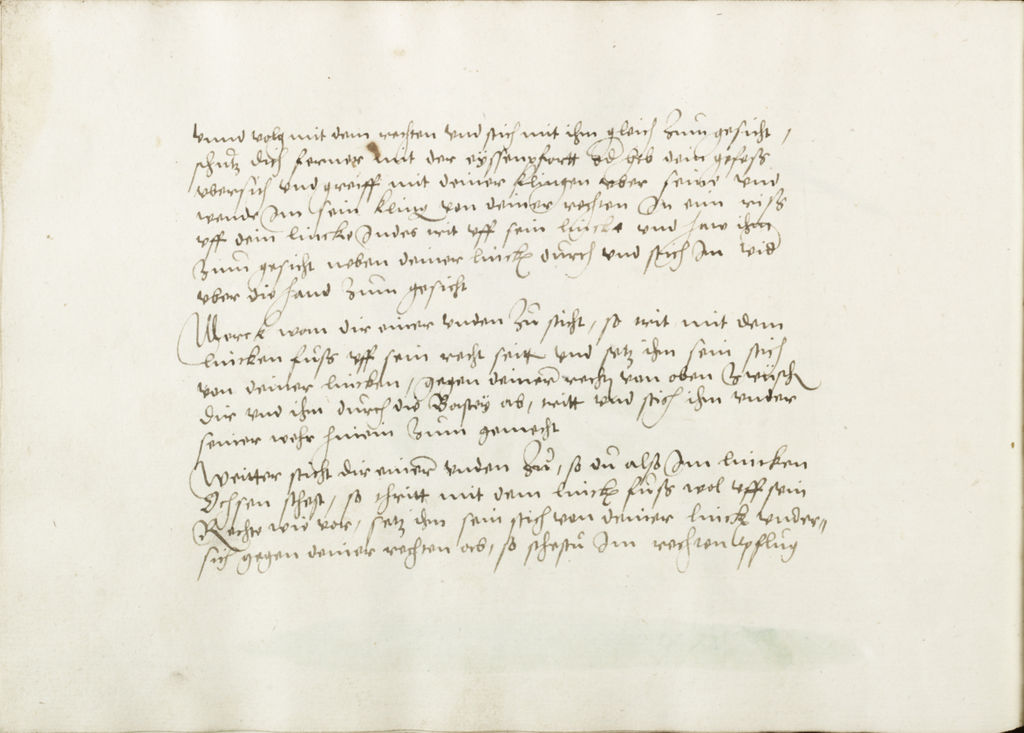 vnnd volg mit dem rechten vnd stich mit ihm gleich zum gesicht,
schutz dich ferner mit der eyssenpfortt od heb dein gefess
vbersich vnd greiff mit deiner klingen vber seine vnd
wende im sein kling von deiner rechten In ein riss
vff dein lincke Indes trit vff sein lincke vnd haw ihm
zum gesicht neben deiner linck durch vnd stich Im wid
vber die hand zum gesicht
Merck wan dir einer vnden zu sticht, so trit mit dem
lincken fuss vff sein recht seitt vnd setz ihm sein stich
von deiner lincken, gegen deiner recht von oben zwisch
dir vnd ihm durch die Bastey ab, tritt vnd stich ihm vnder
seiner wehr hinein zum gemecht
Weitter sticht dir einer vnden zu, so du also Im lincken
Ochsen stehest, so thritt mit dem linck fuss wol vff sein
Rechte wie vor, setz ihm sein stich von deiner linck vnder=
sich gegen deiner rechten ab, so stehestu Im rechten pflug